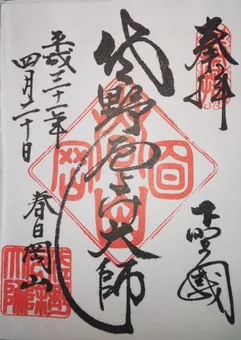 奉拝
下野國
佐野厄よけ大師
春日岡山
平成三十一年
四月二十日